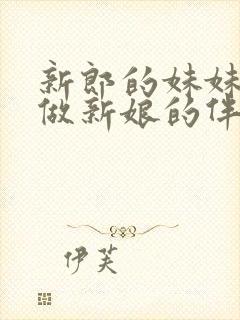 新郎的妹妹
做新娘的伴
伊芙